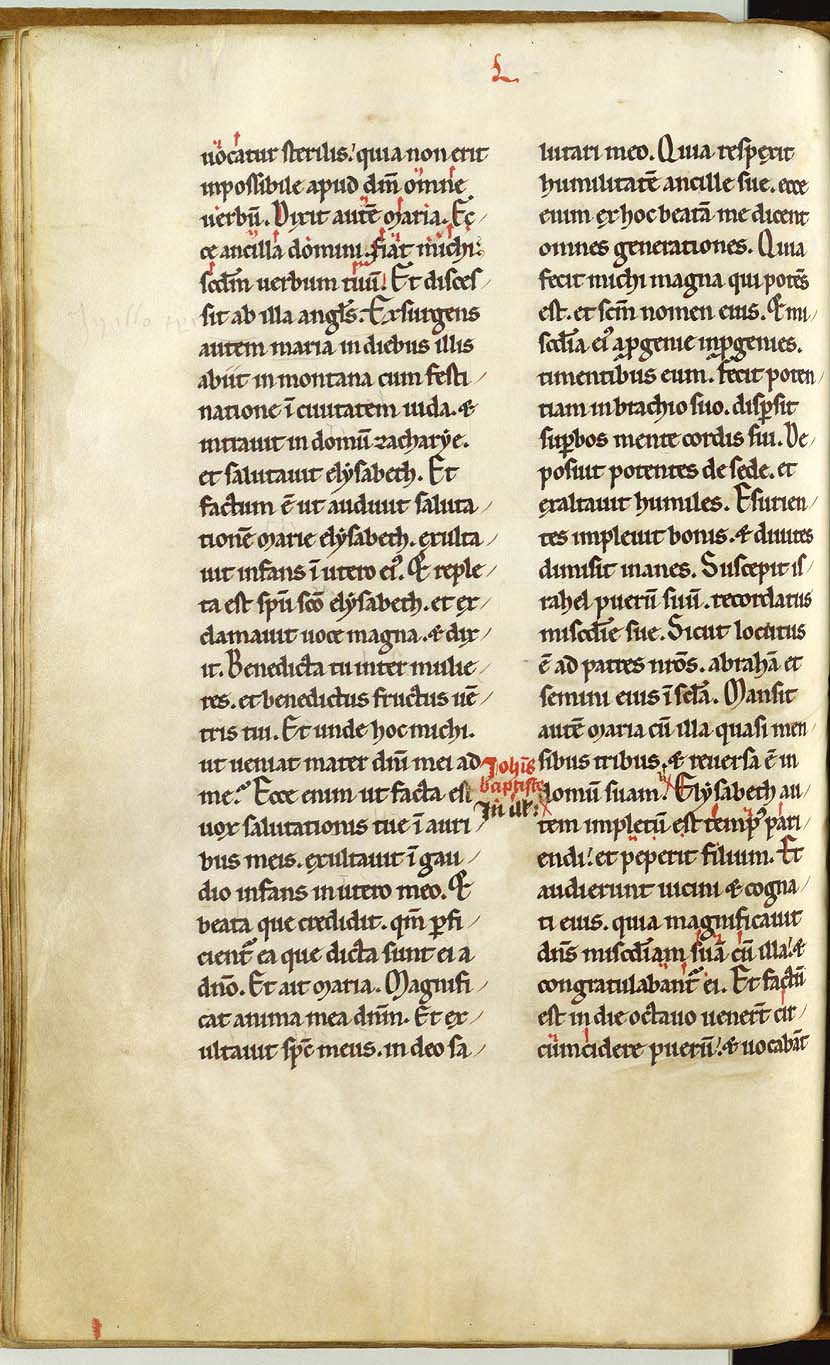 L
uocatur sterilis. quia non erit
inpossibile apud dm̄ omne
uerbū. Dixit autē maria. Ec
ce ancilla domini. fiat michi
scdm̄ uerbum tuū. Et disces
sit ab illa angl̄s. Exsurgens
autem maria in diebus illis
abiit in montana cum festi
natione ī ciuitatem iuda. &
intrauit in domū zacharẏe.
et salutauit elẏsabeth. Et
factum ē ut audiuit saluta
tionē marie elẏsabeth. exulta
uit infans ī utero ei᾽. Et reple
ta est spū scō elẏsabeth. et ex
clamauit uoce magna. & dix
it. Benedicta tu inter mulie
res. et benedictus fructus uē
tris tui. Et unde hoc michi.
ut ueniat mater dn̄i mei ad
me. Ecce enim ut facta est
uox salutationis tue ī auri
bus meis. exultauit ī gau
dio infans in utero meo. Et
beata que credidit. qm̄ ꝑfi
cient̄ ea que dicta sunt ei a
dn̄o. Et ait maria. Magnifi
cat anima mea dn̄m. Et ex
ultauit sp̄c meus. in deo sa
lutari meo. Quia respexit
humilitatē ancille sue. ecce
enim ex hoc beatā me dicent
omnes generationes. Quia
fecit michi magna qui potēs
est. et scm̄ nomen eius. Et mi
scd̄ia ei᾽ a ꝓgenie in ꝓgenies.
timentibus eum. Fecit poten
tiam in brachio suo. disꝑsit
suꝑbos mente cordis sui. De
posuit potentes de sede. et
exaltauit humiles. Esurien
tes impleuit bonis. & diuites
dimisit inanes. Suscepit is
rahel puerū suū. recordatus
miscd̄ie sue. Sicut locutus
ē ad patres nr̄os. abrahā et
semini eius ī scl̄a. Mansit
autē maria cū illa quasi men
sibus tribus. & reuersa ē in
domū suam. Elẏsabeth au
tem impletū est temp᾽ pari
endi. et peperit filium. Et
audierunt uicini & cogna
ti eius. quia magnificauit
dn̄s miscd̄iam suā cū illa. &
congratulabant̄ ei. Et factū
est in die octauo uener̄t cir
cumcidere puerū. & uocabāt
Joh̄is
baptiste